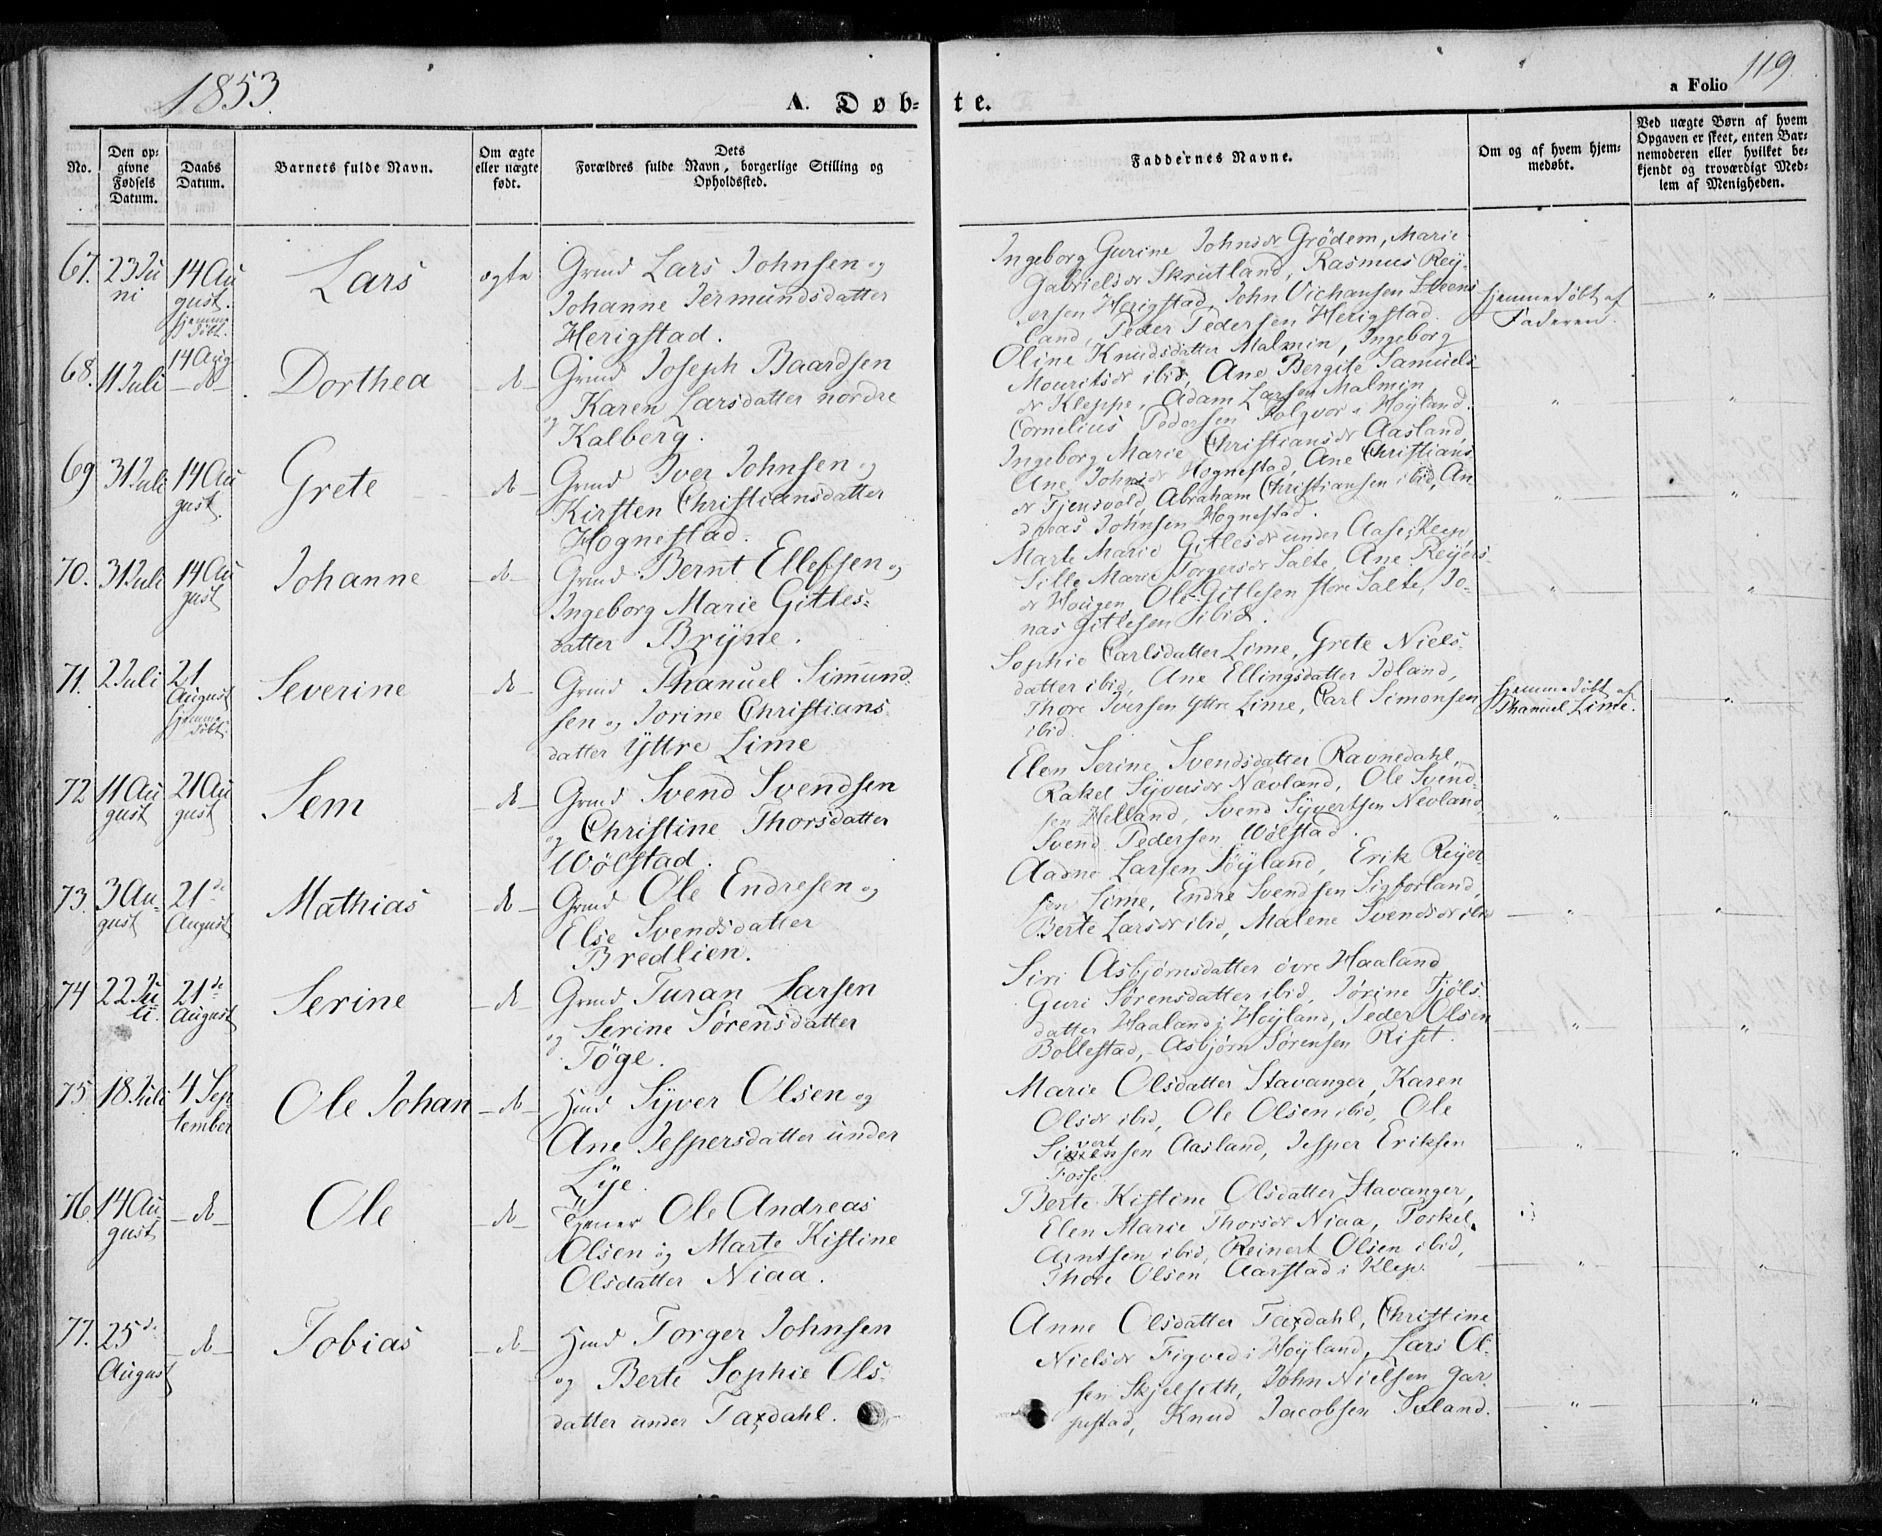 1853.
A. Døb=
te.
a Folio 119
No.
Den op=
givne
Fødsels
Datum.
Daabs
Datum.
Barnets fulde Navn.
Om ægte
eller uægte
født.
Dets
Forældres fulde Navn, borgerlige Stilling og
Opholdssted.
Faddernes Navne.
Om og af hvem hjem=
medøbt.
Ved uægte Børn af hvem
Opgaven er skeet, enten Bar=
nemoderen eller hvilket be=
kjendt og troværdigt Med=
lem af Menigheden.
67. 23 Ju
ni
14 Au
gust.
hjemme
døbt.
Lars
ægte
Grmd Lars Johnsen og
Johanne Jermundsdatter
Herigstad.
Ingeborg Gurine Johnsdr Grödem, Marie
Gabrielsdr Skrutland, Rasmus Rey-
ersen Herigstad, John Vichansen Steens
land, Peder Pedersen Herigstad.
hjemmedöbt af
Faderen.
"
68. 11 Juli
14 Aug
-do-
Dorthea
-do-
Grmd Joseph Baardsen
og Karen Larsdatter nordre
Kalberg.
Oline Knudsdatter Malmin, Ingeborg
Mouritsdr ibid, Ane Bergite Samuels-
dr Kleppe, Adam Larsen Malmin,
Cornelius Pedersen Folgvor i Høyland.
"
"
69. 31 Juli
14 Au
gust.
Grete
-do-
Grmd Iver Johnsen og
Kirsten Christiansdatter
Hognestad.
Ingeborg Marie Christiansdr Aasland,
Ane Johnsdr Hognestad, Ane Christians
dr Tjensvold, Abraham Christiansen ibid, An
dreas Johnsen Hognestad.
"
"
70. 31 Juli
14 Au
gust
Johanne
-do-
Grmd Bernt Ellefsen og
Ingeborg Marie Gitles=
datter Bryne.
Marte Marie Gitlesdr under Aase i Klep,
Sille Marie Torgersdr Salte, Ane Reyers
dr Haugen, Ole Gitlesen store Salte, Jo-
nas Gitlesen ibid.
"
"
71. 2 Juli
21
August
hjemme=
döbt.
Severine
-do-
Grmd Thanuel Simund
sen og Jorine Christians-
datter Yttre Lime
Sophie Carlsdatter Lime, Grete Niels-
datter ibid, Ane Ellingsdatter Idland,
Thore Iversen Yttre Lime, Carl Simonsen
ibid.
hjemmedöbt af
Thanuel Lime.
"
72 11 Au
gust
21 Au
gust
Sem
-do-
Grmd Svend Svendsen
og Christine Thorsdatter
Wölstad.
Elen Serine Svendsdatter Ravnedahl,
Rakel Syvusdr Nævland, Ole Svend-
sen Helland, Svend Syvertsen Nevland
Svend Pedersen Wölstad.
"
"
73. 3 Au-
gust
21de
August
Mathias
-do-
Grmd Ole Endresen og
Else Svendsdatter
Bredlien.
Aadne Larsen Söyland, Erik Reyer
sen Lime, Endre Svendsen Sigborland,
Berte Larsdr ibid, Malene Svendsdr ibid
"
"
74 22 Ju
li.
21de
August
Serine
-do-
Grmd Turan Larsen
og Serine Sörensdatter
Töge.
Siri Asbjørnsdatter övre Haaland
Guri Sörensdatter ibid, Jörine Fjöls-
datter Haaland i Høyland, Peder Olsen
Bollestad, Asbjørn Sörensen Riset.
"
"
75. 18 Juli
4 Sep
tember
Ole Johan
-do-
Hmd Syver Olsen og
Ane Jespersdatter under
Lye.
Marie Olsdatter Stavanger, Karen
Olsdr ibid, Ole Olsen ibid, Ole
Sivertsen Aasland, Jesper Eriksen
Fosse.
"
"
76 14 Au
gust
-do-
Ole
-do-
Tjener Ole Andreas
Olsen og Marte Kistine
Olsdatter Niaa.
Berte Kistine Olsdatter Stavanger,
Elen Marie Thorsdr Niaa, Torkel
Arntsen ibid, Reinert Olsen ibid,
Thore Olsen Aarstad i Klep.
"
"
77. 25de
August
-do-
Tobias
-do-
Hmd Torger Johnsen
og Berte Sophie Ols-
datter under Taxdahl.
Anne Olsdatter Taxdahl, Christine
Nielsdr Figved i Høyland, Lars Ol-
sen Skjelseth, John Nielsen Gar-
pestad, Knud Jacobsen Soland.
"
"